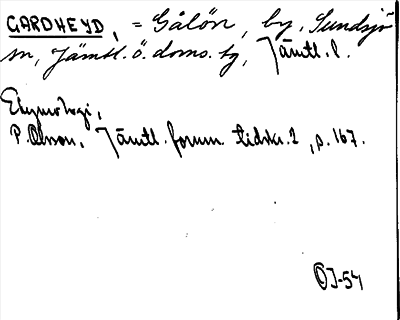 GARDHEYD, = Gålön, by, Sundsjö
sn, Jämtl. ö. doms. tg, Jämtl. l.
Etymologi,
P. Olsson, Jämtl. fornm. tidskr. 2, s. 167.
OJ-54